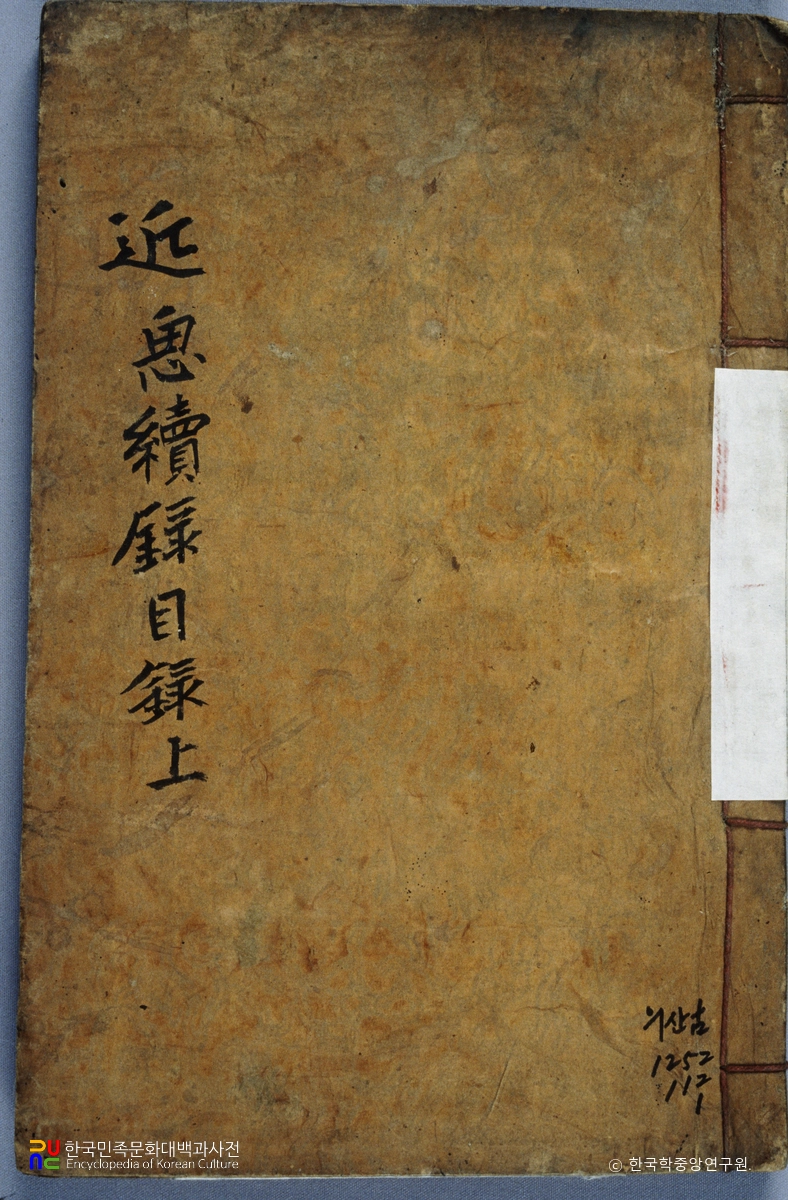 近思續錄目錄上
의산古
1252
112
1
한국민족문화대백과사전
Encyclopedia of Korean Culture
© 한국학중앙연구원